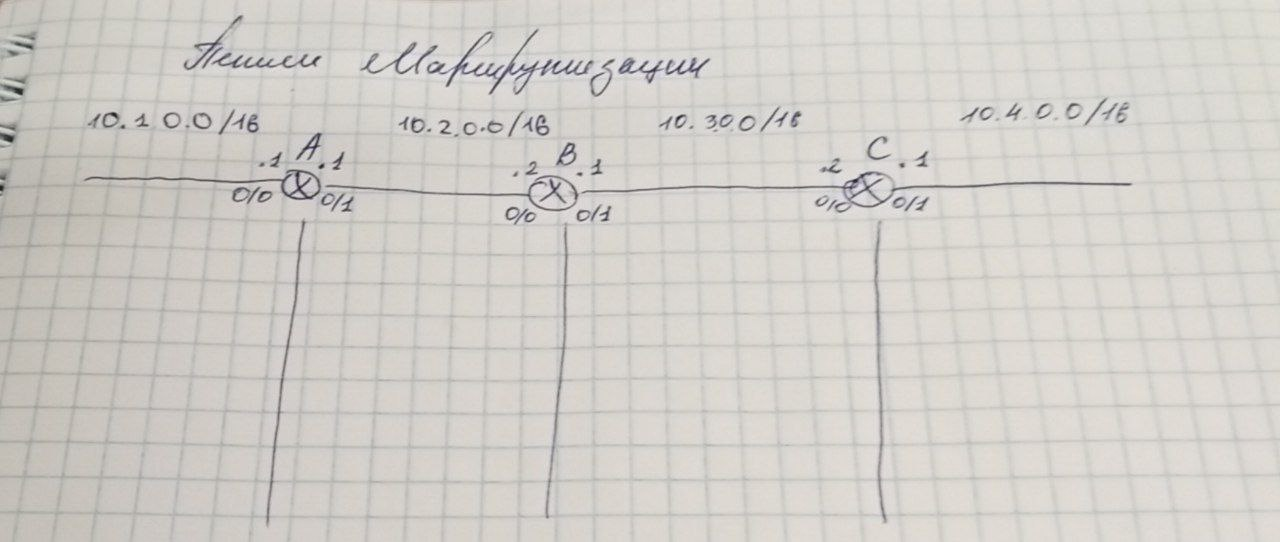 Маршрутизации
10.1 0.0/16 10.2.0.0/16 10.3.0.0/16 10.4.0.0/16
.1 A .1 .2 B .1 .2 C .1
0/0 0/1 0/0 0/1 0/0 0/1